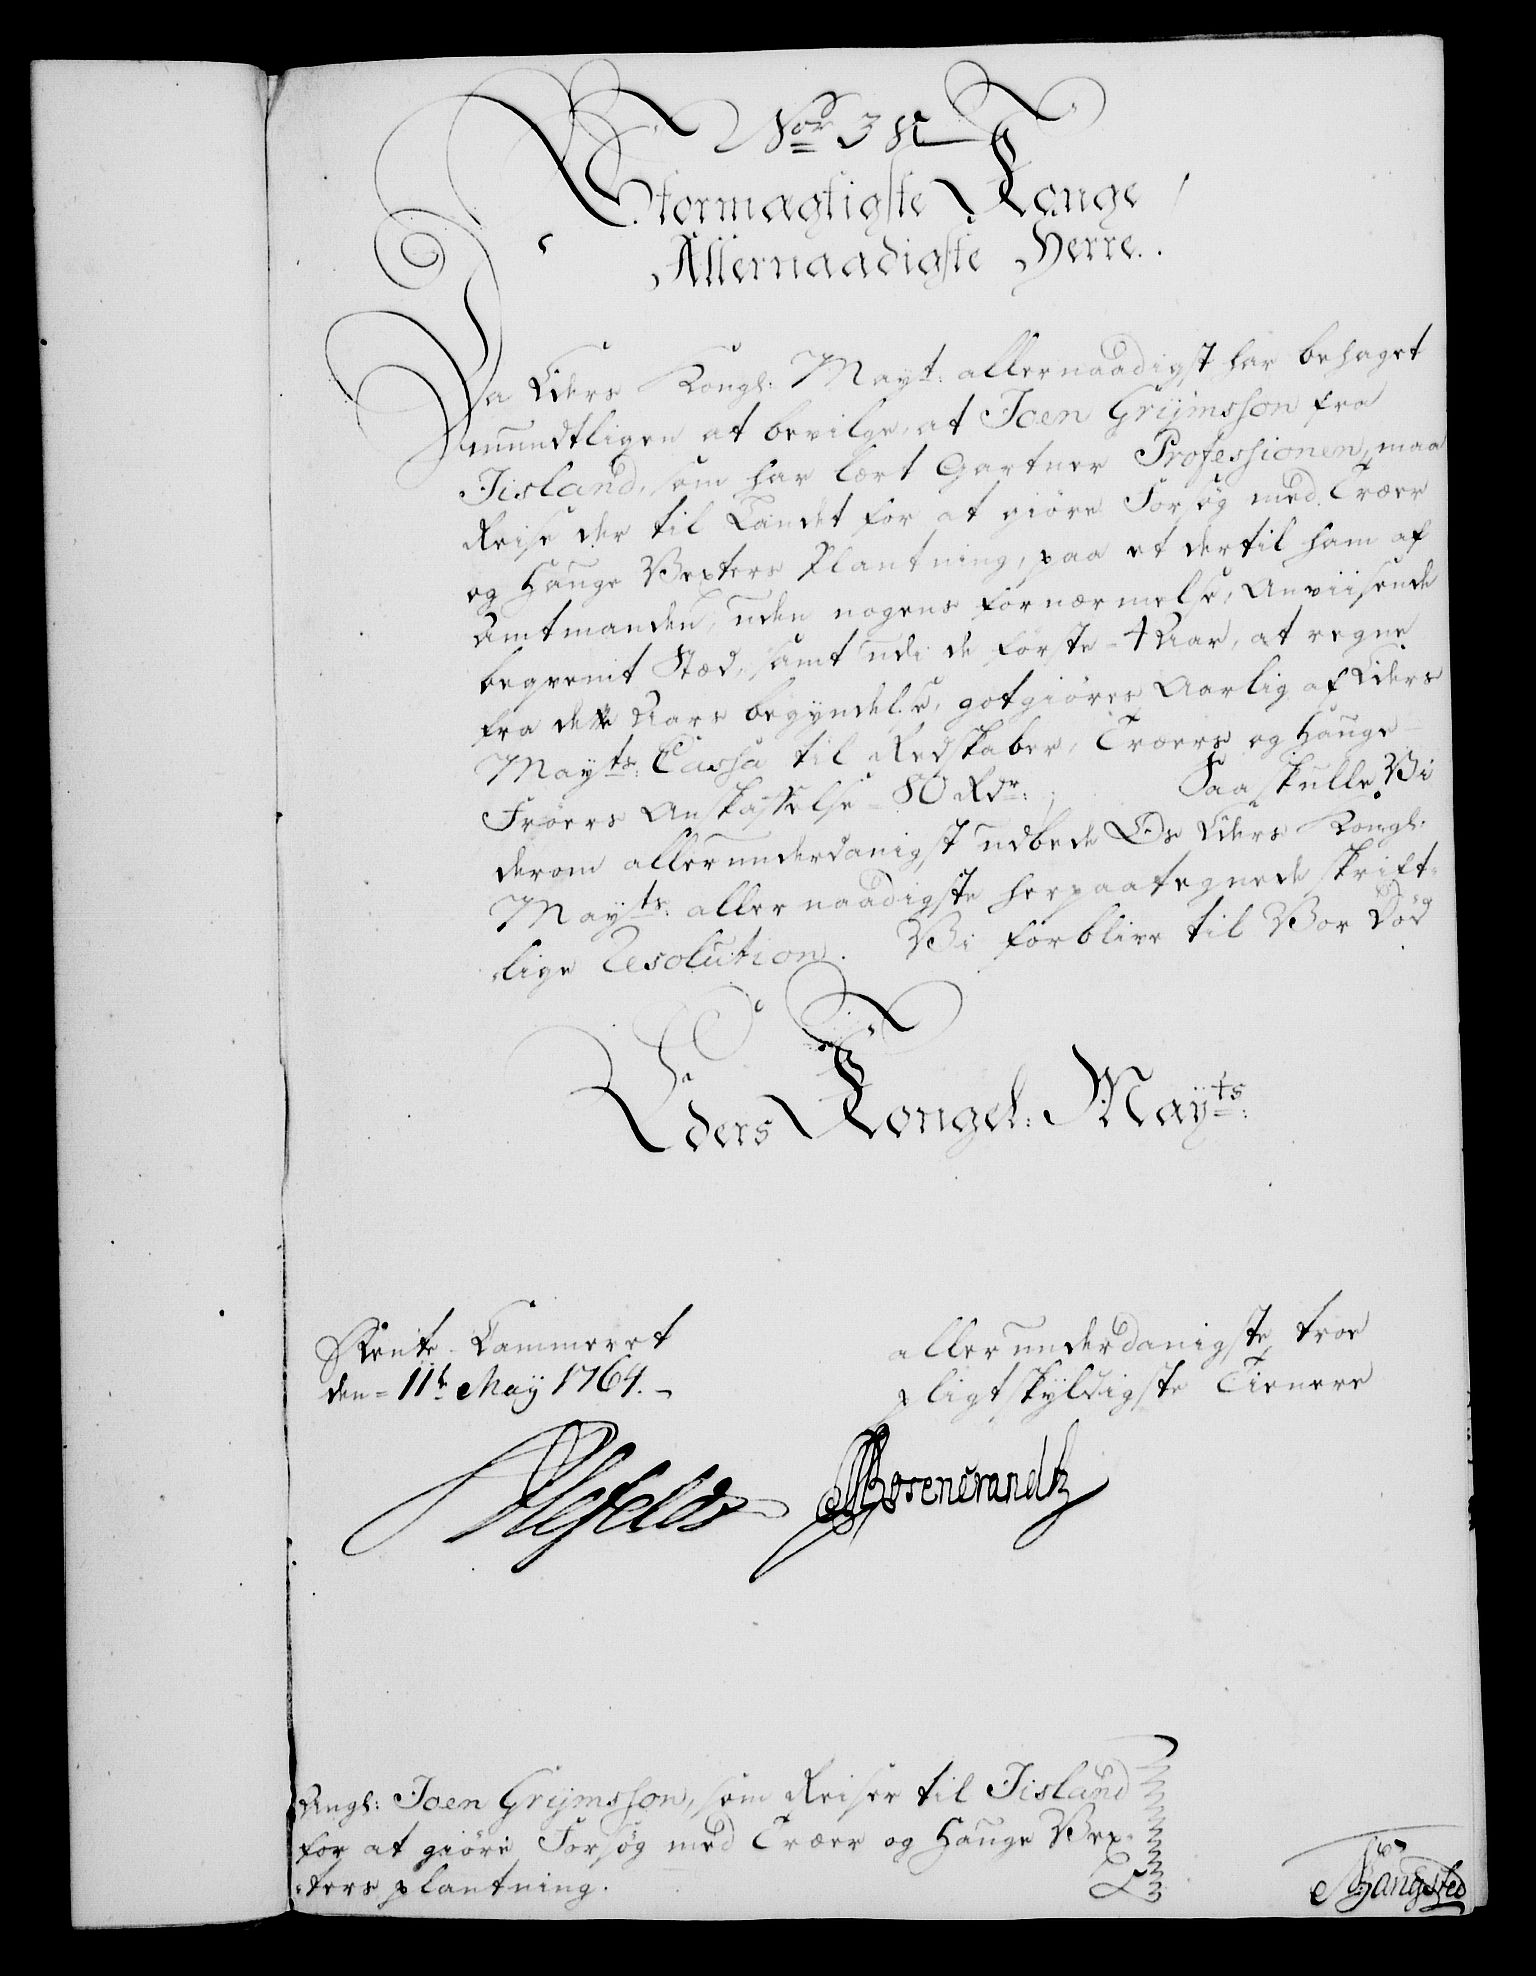 Nor 38
Stormagtigste Konge
Allernaadigste Herre.
Da Eders Kongl: Mayt: allernaadigst har behaget
mundtligen at bevilge, at Joen Grijmsson fra
Jisland, som har lært Gartner Professionen, maa
Reise der til Landet for at giöre Forsøg med Træer
og Hauge Vexters Plantning, paa et dertil ham af
Amtmanden, uden nogens fornærmelse, Anviisende
beqvemt Stæd, samt udi de förste 4 Aar, at regne
fra dette Aars begyndelse, gotgiöres Aarlig af Eders
Mayts: Cassa til Redskaber, Træers og Hauge
Fröers Anskaffelse = 80 Rdr: ; Saa skulle Vi
derom allerunderdanigst udbede Os Eders Kongl:
Mayts: allernaadigste herpaategnede skrift-
lige Resolution. Vi forblive til Vor Död
Eders Kongel: Mayts:
Rente-Cammeret
den = 11te May 1764.
allerunderdanigste troe
pligtskyldigste Tienere
Ahlefeldt
Rosencrandtz
Angl: Joen Grijmsson, som Reiser til Jisland
for at giöre Forsøg med Træer og Hauge Vex-
ters plantning.
Bangsted